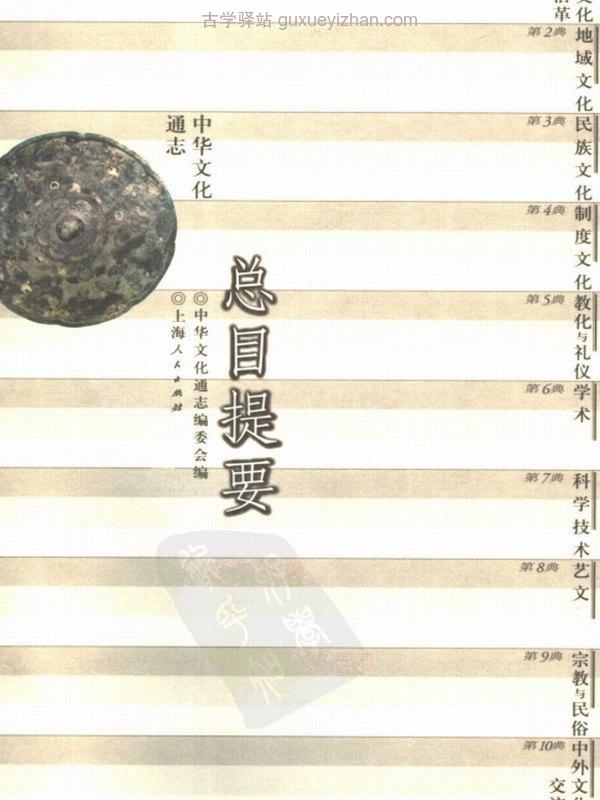 古学驿站 guxueyizhan.com
沿革
第2典
地域文化
第3典
民族文化
第4典
制度文化
第5典
教化与礼仪
第6典
学术
第7典
科学技术
第8典
艺文
第9典
宗教与民俗
第10典
中外文化
交流
中华文化
通志
总目提要
◎中华文化通志编委会编
◎上海人民出版社